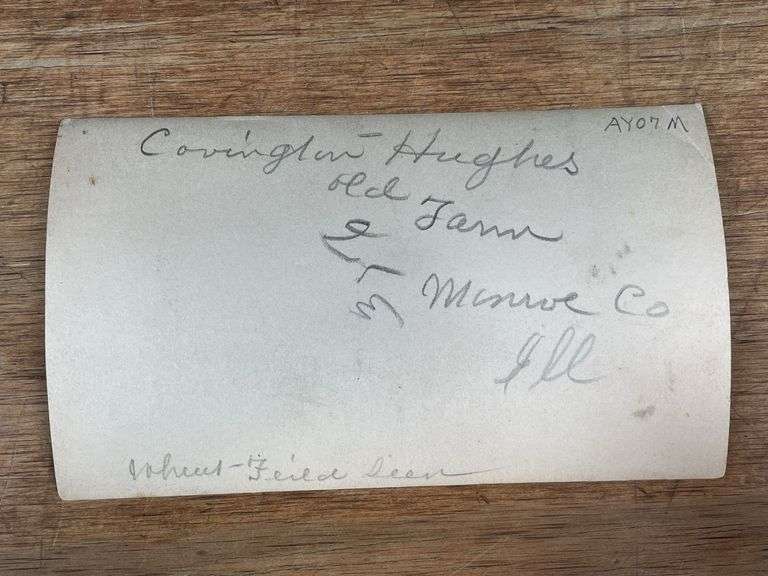 AY07 M
Covington Hughes
old Farm
Monroe Co
Ill
Wheat-Feild Seen